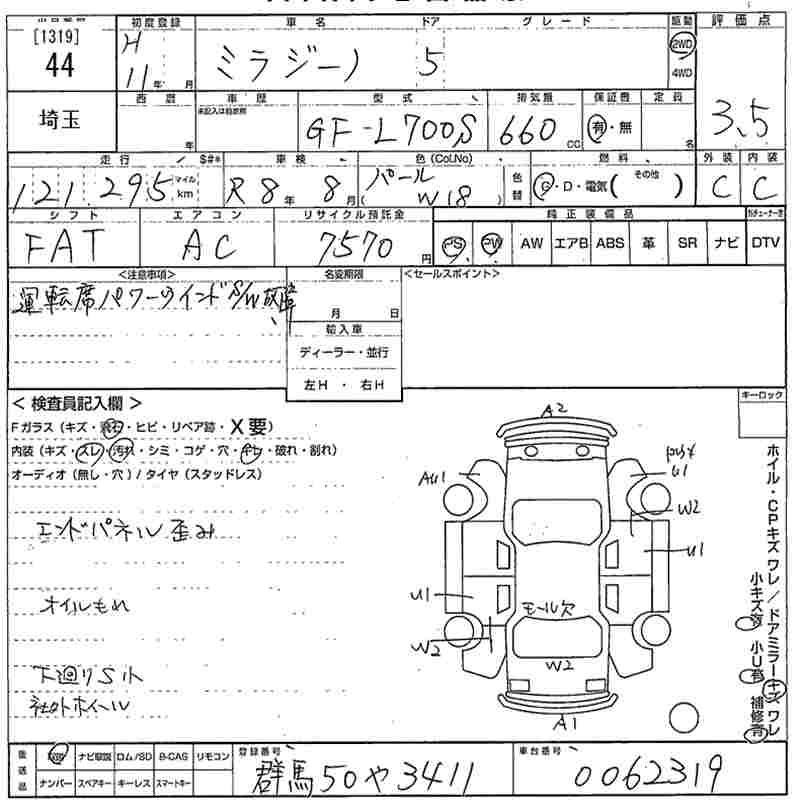 [1319]
44
初度登録
H
11年 月
車名 ドア グレード
ミラジーノ 5
駆動
2WD
4WD
評価点
3.5
埼玉
西暦
年
車歴
未記入は自家用
型式
GF-L700S
排気量
660
CC
保証書
有・無
定員
名
走行 / $#*
121,295
マイル
km
車検
R8年 8月
色(Col.No)
パール
(W18)
色替
燃料
G・D・電気( その他 )
外装 内装
C C
シフト
FAT
エアコン
AC
リサイクル預託金
7570円
純正装備品
PS PW AW エアB ABS 革 SR ナビ DTV
<注意事項>
運転席パワーウインドS/W故障
名変期限
月 日
輸入車
ディーラー・並行
左H ・ 右H
<セールスポイント>
< 検査員記入欄 >
Fガラス(キズ・飛石・ヒビ・リペア跡・X要)
内装(キズ・スレ・汚れ・シミ・コゲ・穴・・破れ・割れ)
オーディオ(無し・穴)/タイヤ(スタッドレス)
エンドパネル歪み
オイルもれ
下廻りSh
社外ホイール
キーロック
A2
AU1
U1
W2
U1
U1
W2
モール欠
W2
A1
ホイル・CPキズ ワレ/ドアミラーキズ ワレ
小キズ有 小U有 補修有
後送品
取説 ナビ取説 ロム/SD B-CAS リモコン
ナンバー スペアキー キーレス スマートキー
登録番号
群馬50や3411
車台番号
0062319